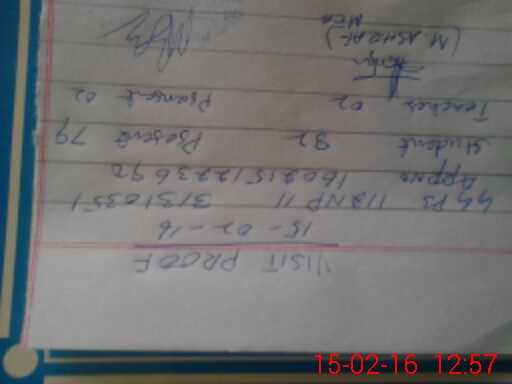 VISIT PROOF
15-02-16
GGPS 113NP 11 31310351
Appno 160215122369
Student 82 Present 79
Teacher 02 Present 02
(M ASHRAF)
MEA
15-02-16 12:57